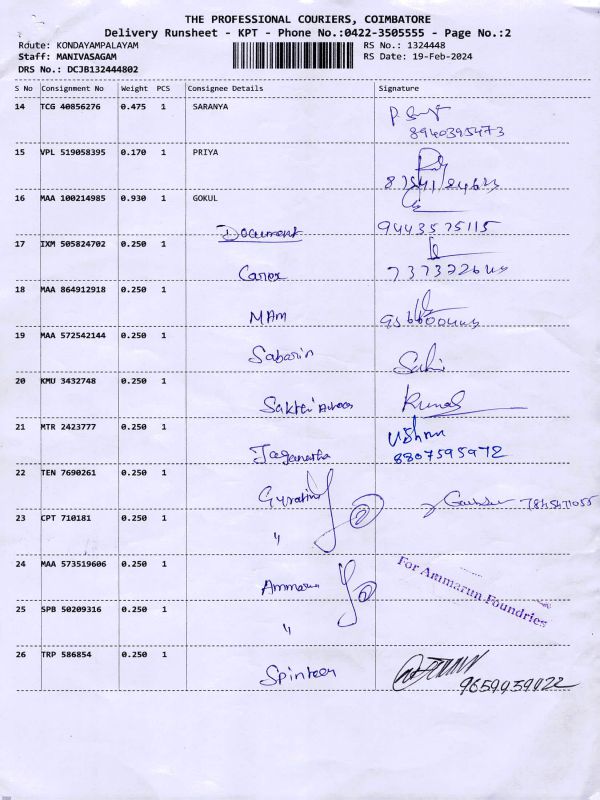 THE PROFESSIONAL COURIERS, COIMBATORE
Delivery Runsheet - KPT - Phone No.:0422-3505555 - Page No.:2
Route: KONDAYAMPALAYAM
RS No.: 1324448
Staff: MANIVASAGAM
RS Date: 19-Feb-2024
DRS No.: DCJB132444802
S No Consignment No Weight PCS Consignee Details Signature
14 TCG 40856276 0.475 1 SARANYA
8940395473
15 VPL 519058395 0.170 1 PRIYA
16 MAA 100214985 0.930 1 GOKUL
Document 9443575115
17 IXM 505824702 0.250 1
18 MAA 864912918 0.250 1
MAm
19 MAA 572542144 0.250 1
Sabarin
20 KMU 3432748 0.250 1
Sakthi
21 MTR 2423777 0.250 1
Jaganatha 8807595972
22 TEN 7690261 0.250 1
23 CPT 710181 0.250 1
"
24 MAA 573519606 0.250 1
For Ammarun Foundries
Ammarun
25 SPB 50209316 0.250 1
"
26 TRP 586854 0.250 1
Spinteer 9659959922